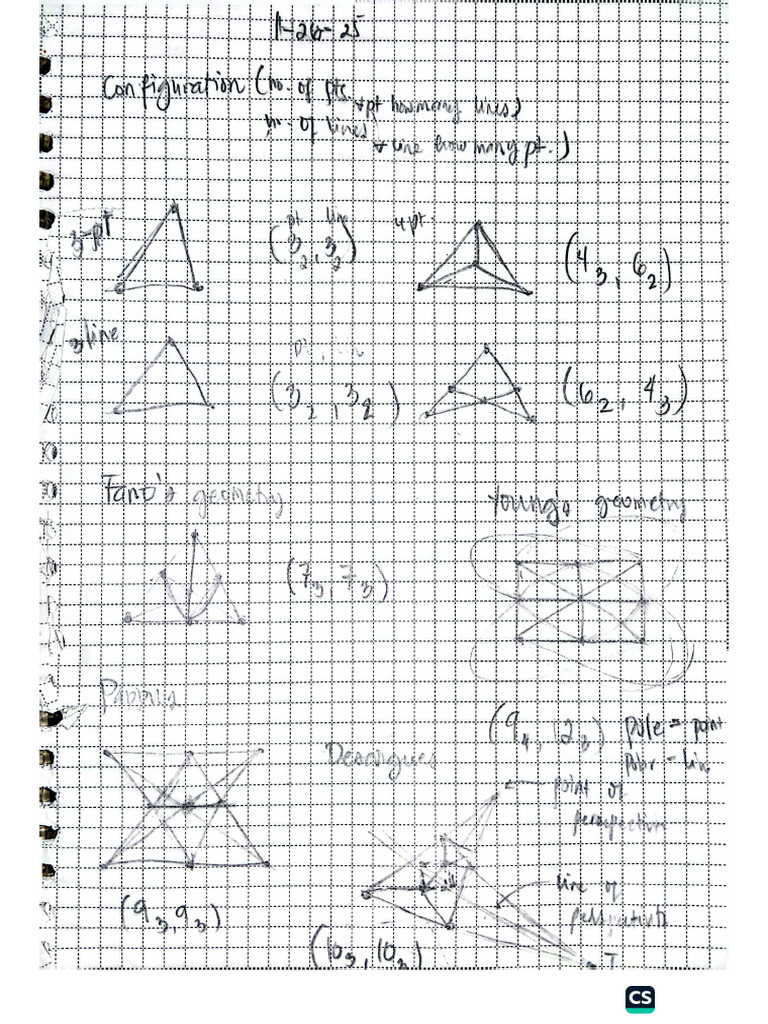 11-26-25
Configuration (no. of pts
∀ pt how many lines)
no. of lines
∀ line how many pt.)
3-pt
pt line
(3₂, 3₂)
4 pt
(4₃, 6₂)
3 line
(3₂, 3₂)
(6₂, 4₃)
Fano's geometry
Young's geometry
(7₃, 7₃)
Pappus
(9₄, 12₃) pole = point
polar = line
Desargues
point of
perspective
line of
(9₃, 9₃)
(10₃, 10₃)
T
CS